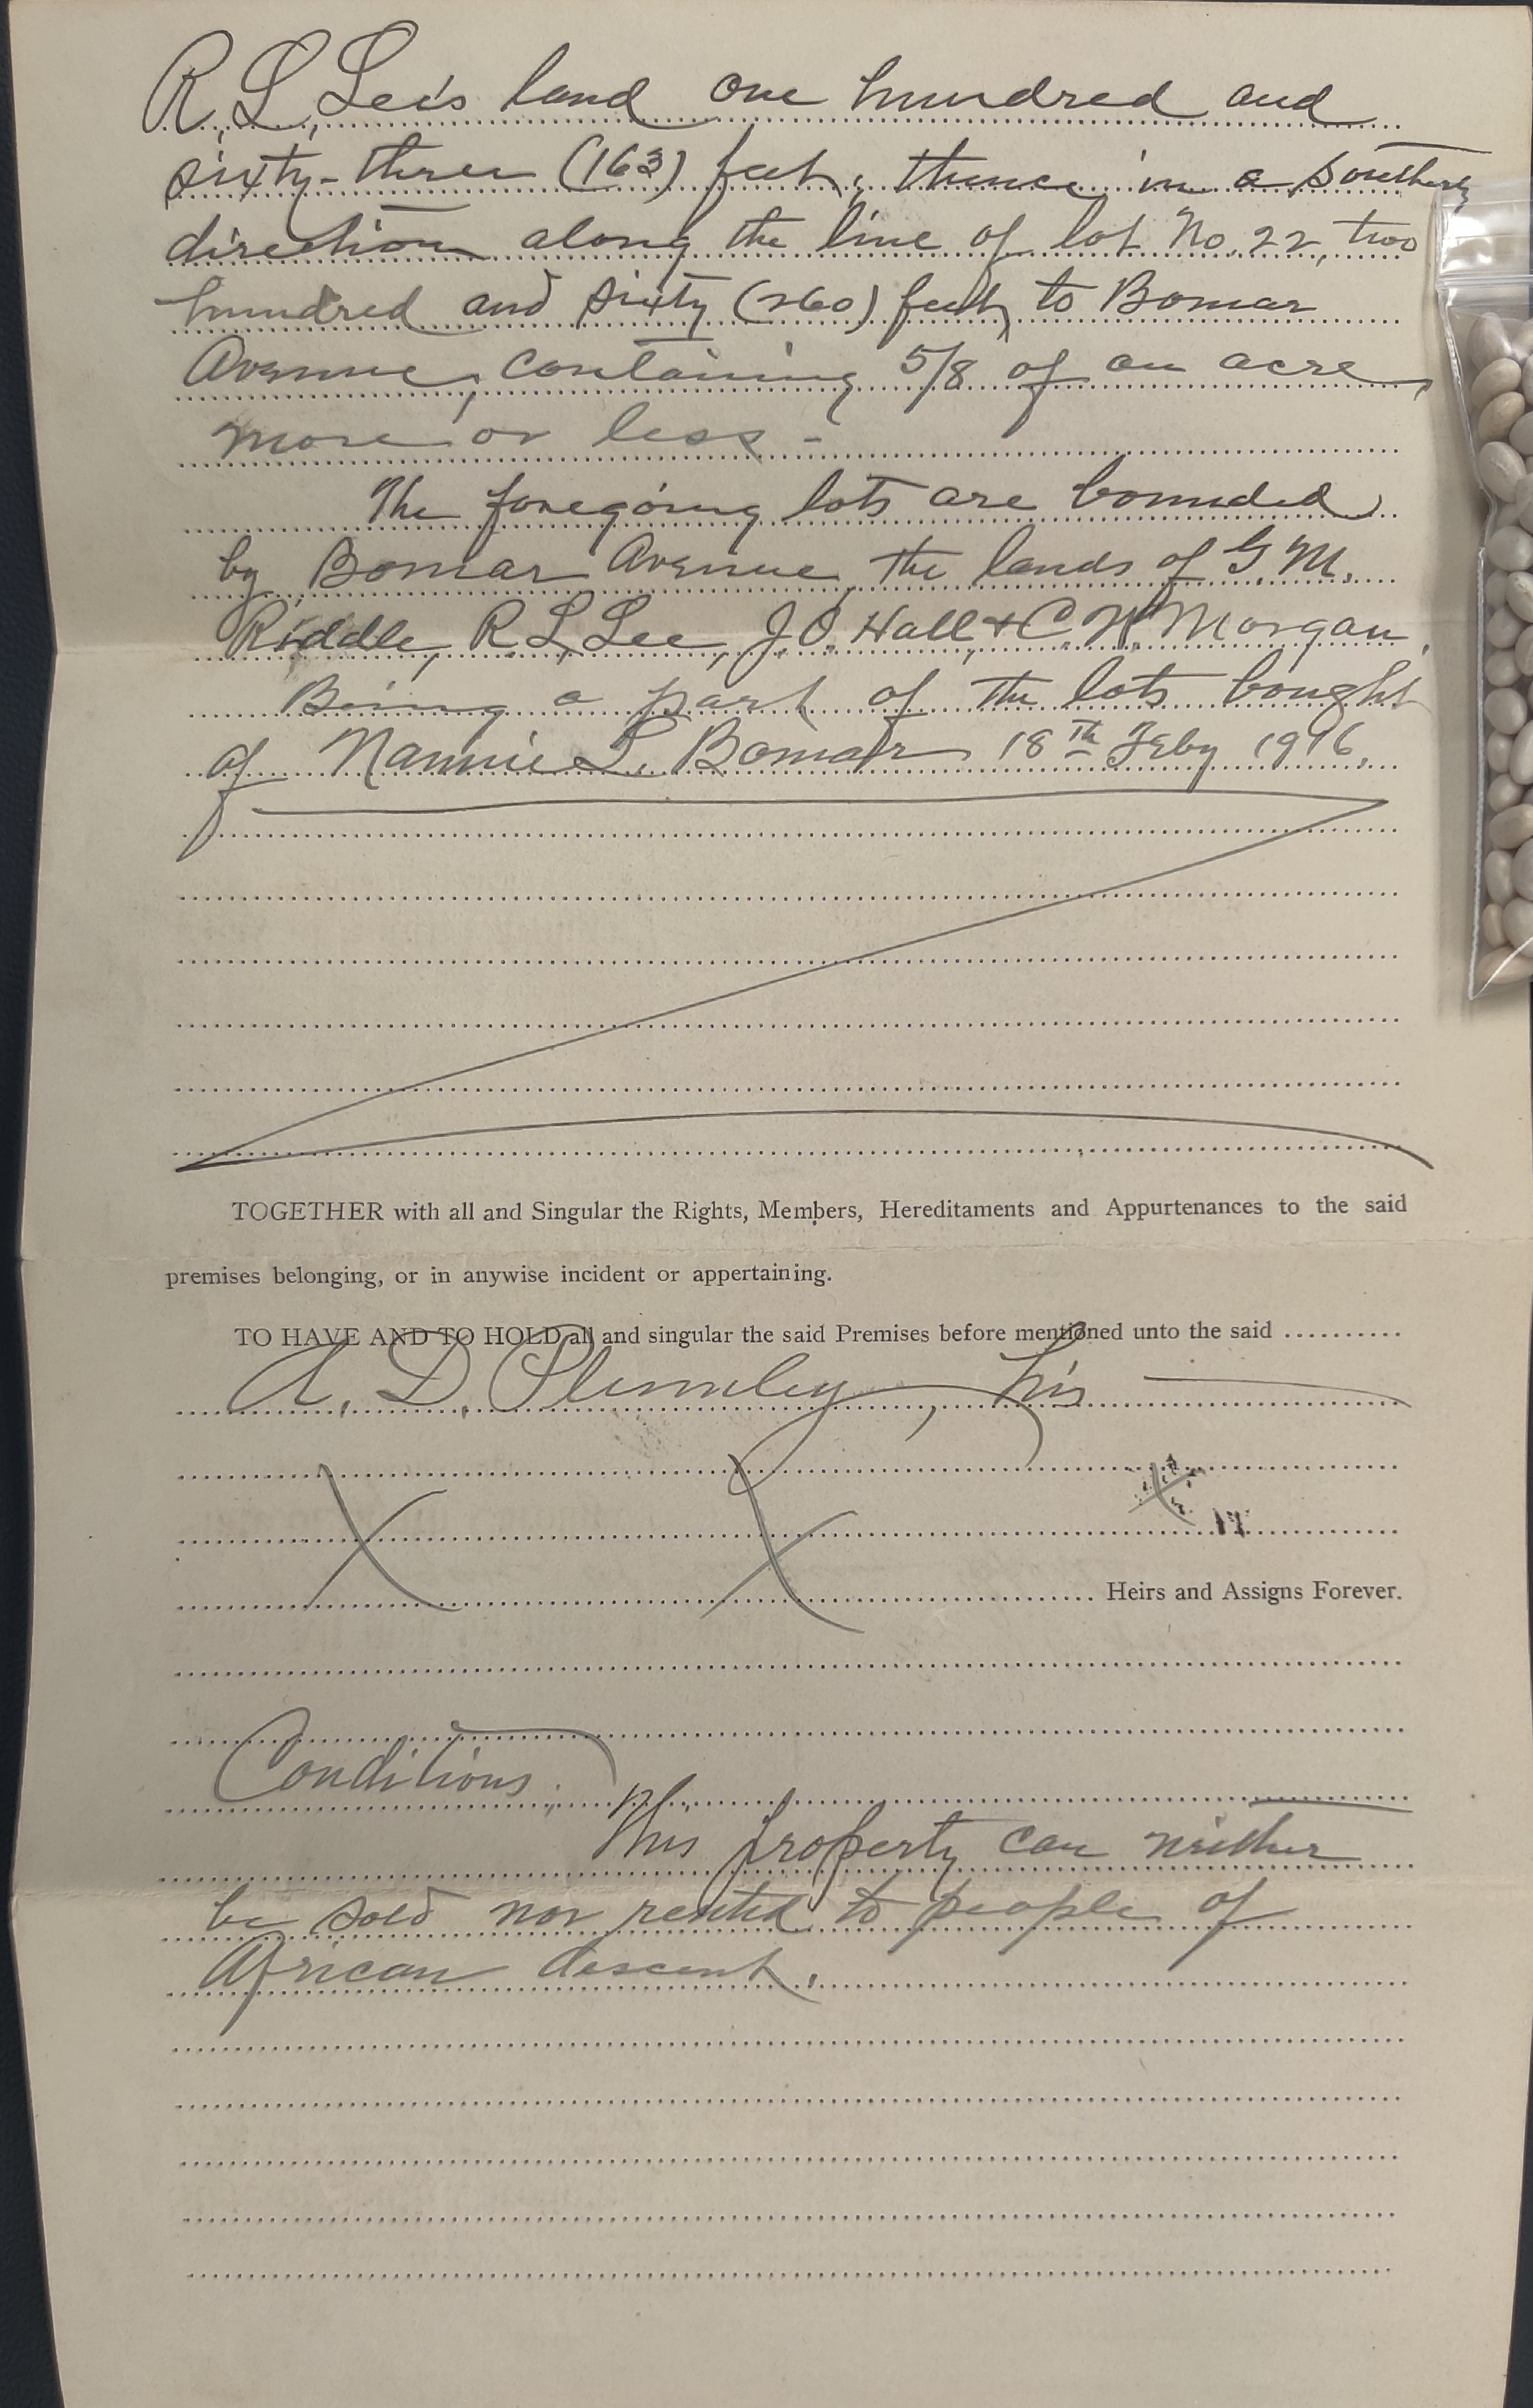 R. L. Lee's land one hundred and
sixty-three (163) feet; thence in a southerly
direction along the line of lot No. 22, two
hundred and sixty (260) feet, to Bomar
Avenue, containing 5/8 of an acre,
more or less -
The foregoing lots are bounded
by Bomar Avenue, the lands of G. M.
Riddle, R. L. Lee, J. O. Hall & C. W. Morgan.
Being a part of the lots bought
of Nannie L. Bomar 18th Feby 1916.
TOGETHER with all and Singular the Rights, Members, Hereditaments and Appurtenances to the said
premises belonging, or in anywise incident or appertaining.
TO HAVE AND TO HOLD all and singular the said Premises before mentioned unto the said
A. D. Plumley, his
Heirs and Assigns Forever.
Conditions.
This property can neither
be sold nor rented to people of
African descent.